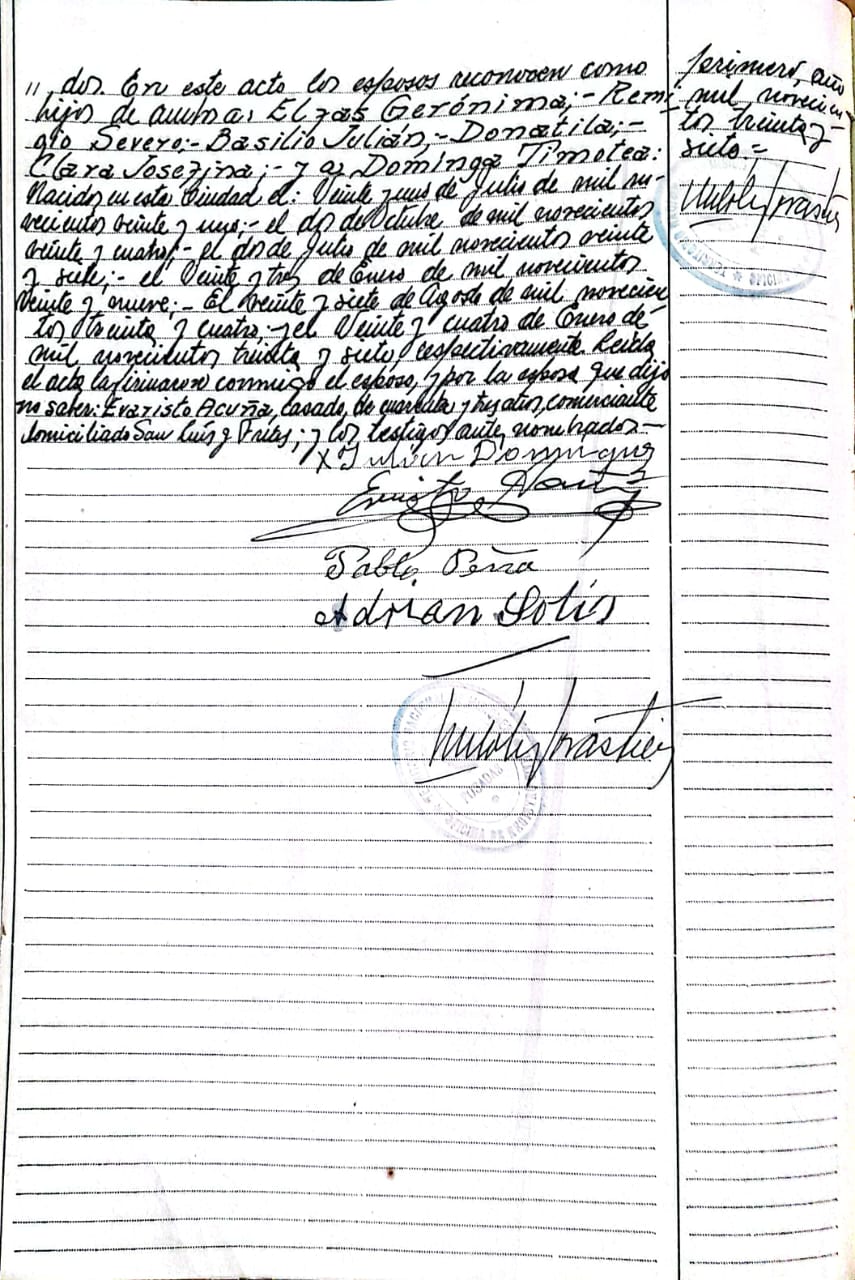 „ dos. En este acto los esposos reconocen como
hijos de ambos, Elzas Gerónima;- Remi
gio Severo;- Basilio Julián,- Donatila;-
Clara Josefina;- y a Dominga Timotea:
Nacidos en esta Ciudad el: Veinte y uno de Julio de mil no-
vecientos veinte y uno;- el dos de Octubre de mil novecientos
veinte y cuatro;- el dos de Julio de mil novecientos veinte
y siete;- el Veinte y tres de Enero de mil novecientos
veinte y nueve;- El veinte y siete de Agosto de mil novecien
tos treinta y cuatro;- y el Veinte y cuatro de Enero de
mil novecientos treinta y siete respectivamente. Leida
el acta la firmaron conmigo el esposo, y por la esposa que dijo
no saber: Evaristo Acuña, casado, de cuarenta y tres años, comerciante
domiciliado San Luis y Frites; y los testigos antes nombrados-
X Julian Dominguez
Pablo Peña
Adrian Solis
primero, año
mil novecien-
tos treinta y
siete.-
POSADAS
OFICINA DE